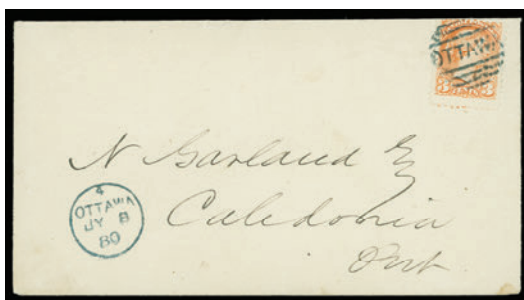 OTTAWA
3 3
N Garland Esq
Caledonia
Ont
4
OTTAWA
JY 8
80